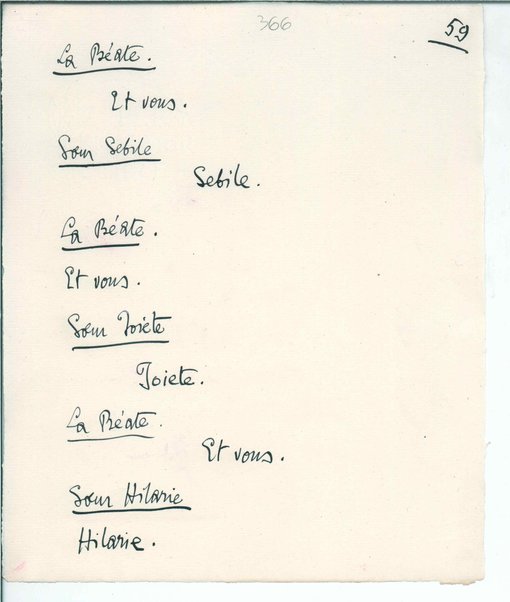 366
59
La Béate.
Et vous.
Sœur Sebile
Sebile.
La Béate.
Et vous.
Sœur Joiete
Joiete.
La Béate.
Et vous.
Sœur Hilarie
Hilarie.